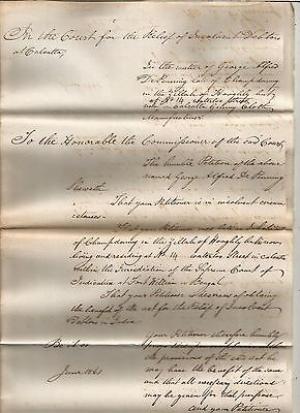 In the Court for the Relief of Insolvent Debtors
at Calcutta,
In the matter of George Alfred
De Penning late of Champdanny
in the Zillah of Hooghly but
of No 14
Calcutta
Manufacturer.
To the Honorable the Commissioner of the said Court
The humble Petition of the above
named George Alfred De Penning
Sheweth
That your Petitioner is in insolvent circum
stances
That your Petitioner
of Champdanny in the Zillah of Hooghly but now
living and residing at No 14. Street in Calcutta
within the Jurisdiction of the Supreme Court of
Judicature at Fort William in Bengal
That your Petitioner is desirous of obtaining
the benefit of the act for the Relief of Insolvent
Debtors in India
Your Petitioner therefore humbly
the provisions of the said act he
may have the benefit of the
same and that all necessary directions
may be given for that purpose
June 1861
and your Petitioner